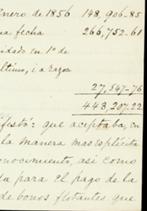 Enero de 1856 148,906-85
na fecha 266,752-61
idado en 1º de
ultimo, i a razon
27,547-76
443,207.22
ifestó: que aceptaba, en
la manera mas esplícita
onocimiento, así como
a para el pago de la
de bonos flotantes que